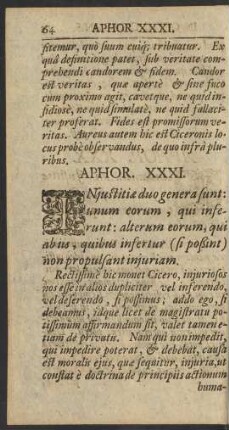 64 APHOR XXXI.
fitemur, quò suum cuiq; tribuatur. Ex
quâ definitione patet, sub veritate com-
prehendi candorem & fidem. Candor
est veritas, quæ apertè & sine fuco
cum proximo agit, cavetque, ne quid in-
sidiosè, ne quid simulatè, ne quid fallaci-
ter proferat. Fides est promissorum ve-
ritas. Aureus autem hic est Ciceronis lo-
cus probè observandus, de quo infrà plu-
ribus.
APHOR. XXXI.
INjustitiæ duo genera sunt:
unum eorum, qui infe-
runt: alterum eorum, qui
ab us, quibus infertur (si possint)
non propulsant injuriam.
Rectissimè hic monet Cicero, injuriosos
nos esse in alios dupliciter vel inferendo,
vel deserendo, si possimus; addo ego, si
debeamus, idque licet de magistratu po-
tissimùm affirmandum sit, valet tamen e-
tiam de privatis. Nam qui non impedit,
qui impedire poterat, & debebat, causa
est moralis ejus, quæ sequitur, injuria, ut
constat è doctrina de principiis actionum
huma-